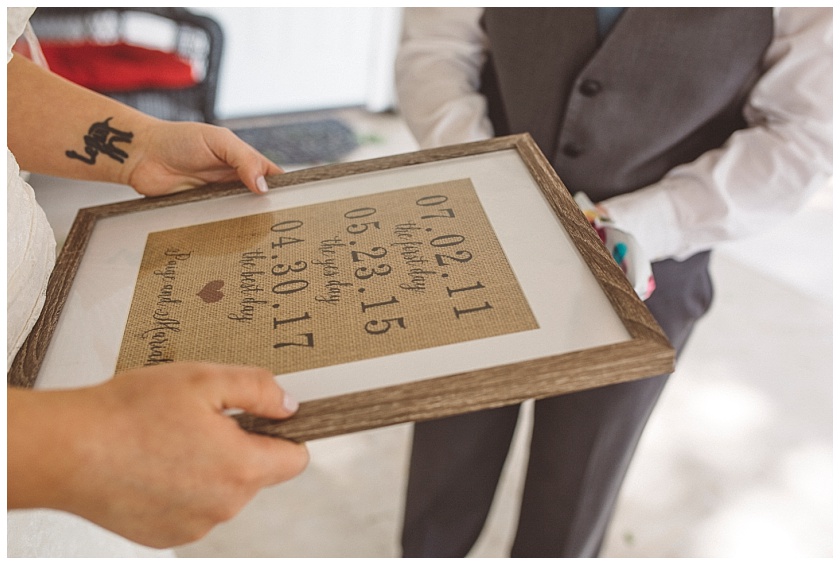 07.02.11
the first day
05.23.15
the yes day
04.30.17
the best day
and